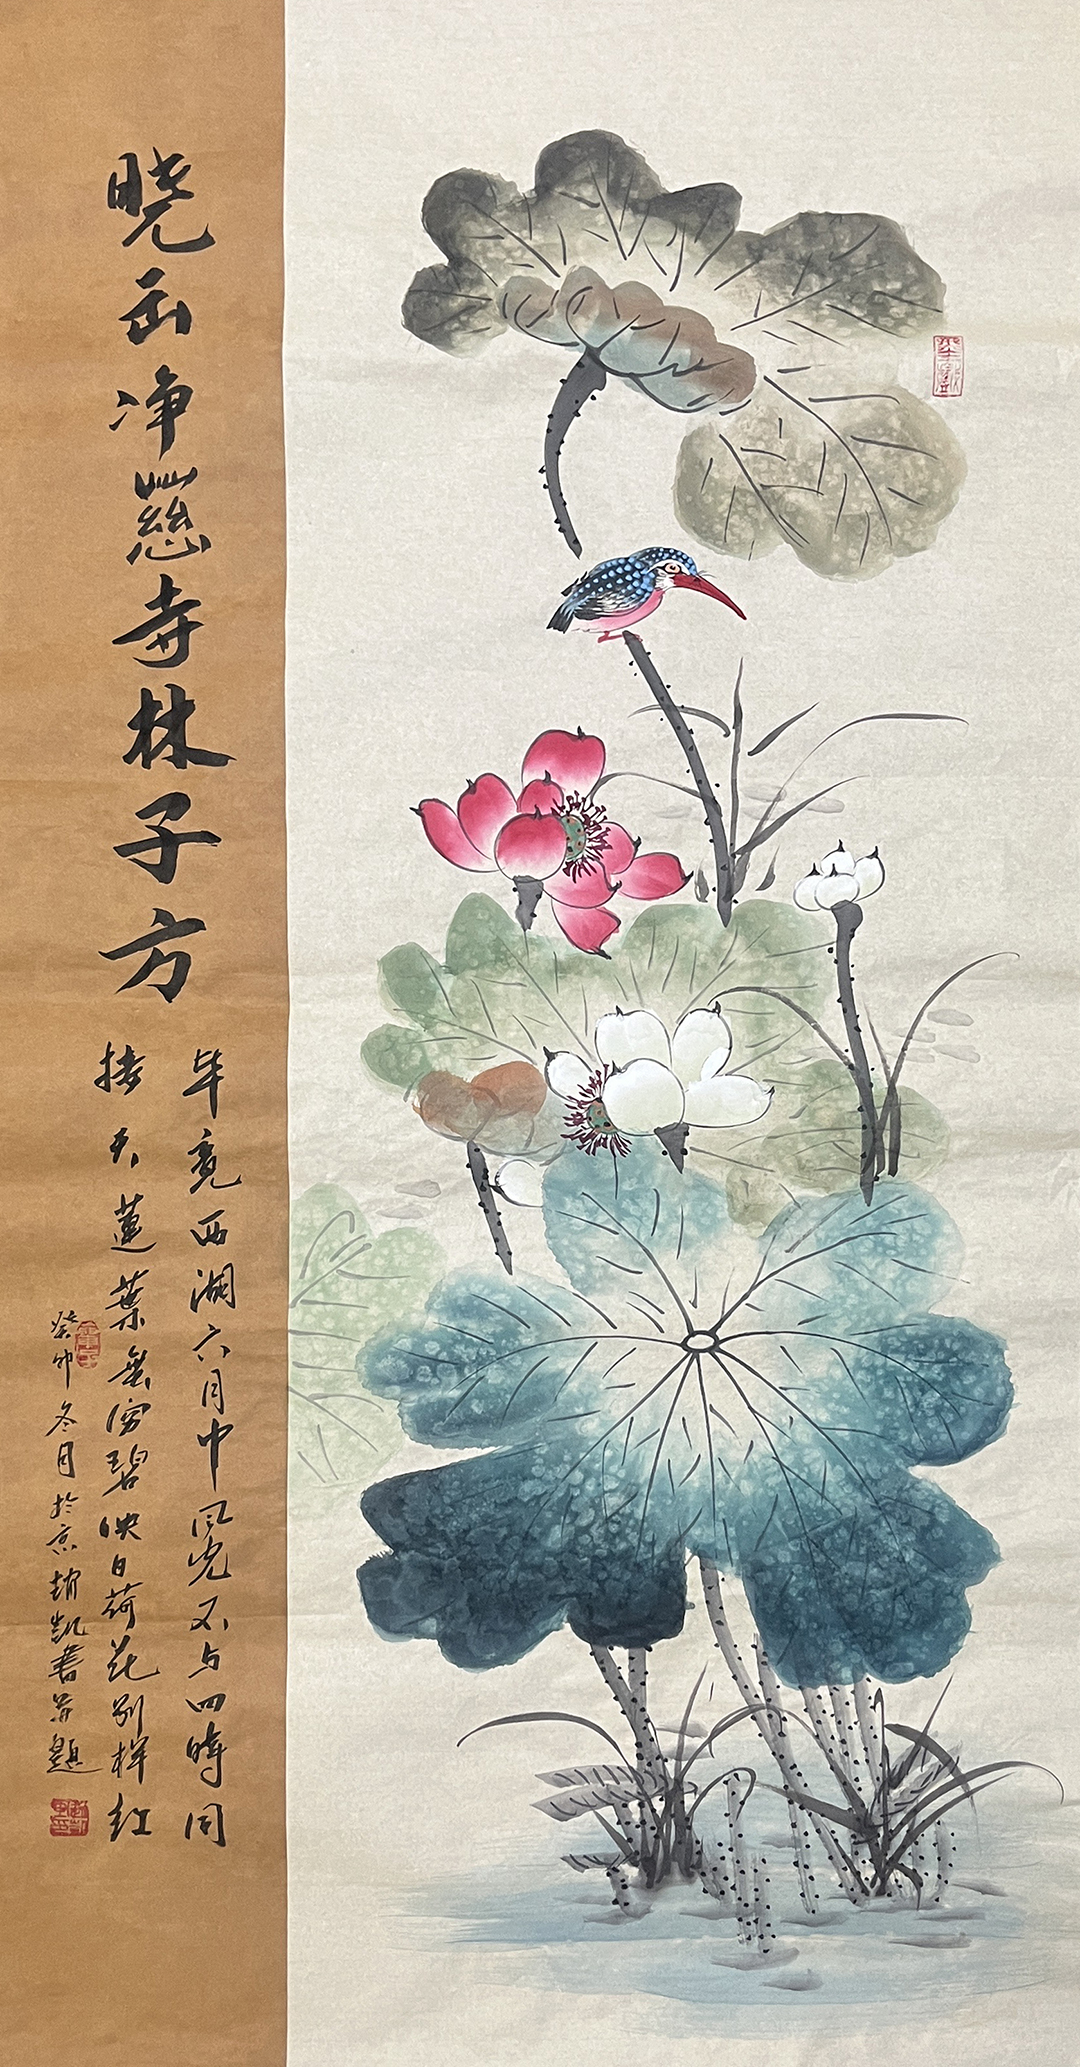 晓出净慈寺林子方
毕竟西湖六月中风光不与四時同
接天蓮葉無穷碧映日荷花别样红
癸卯冬月於京趙凱書并題